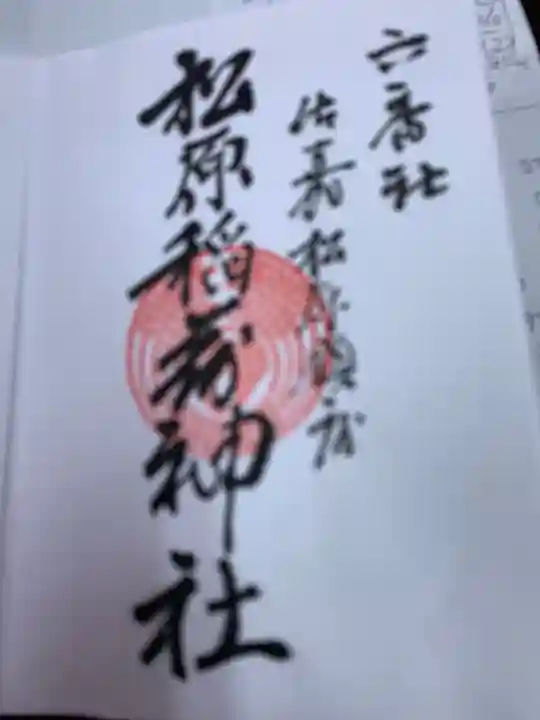 六番社
佐嘉松原鎮守
松原稲荷神社